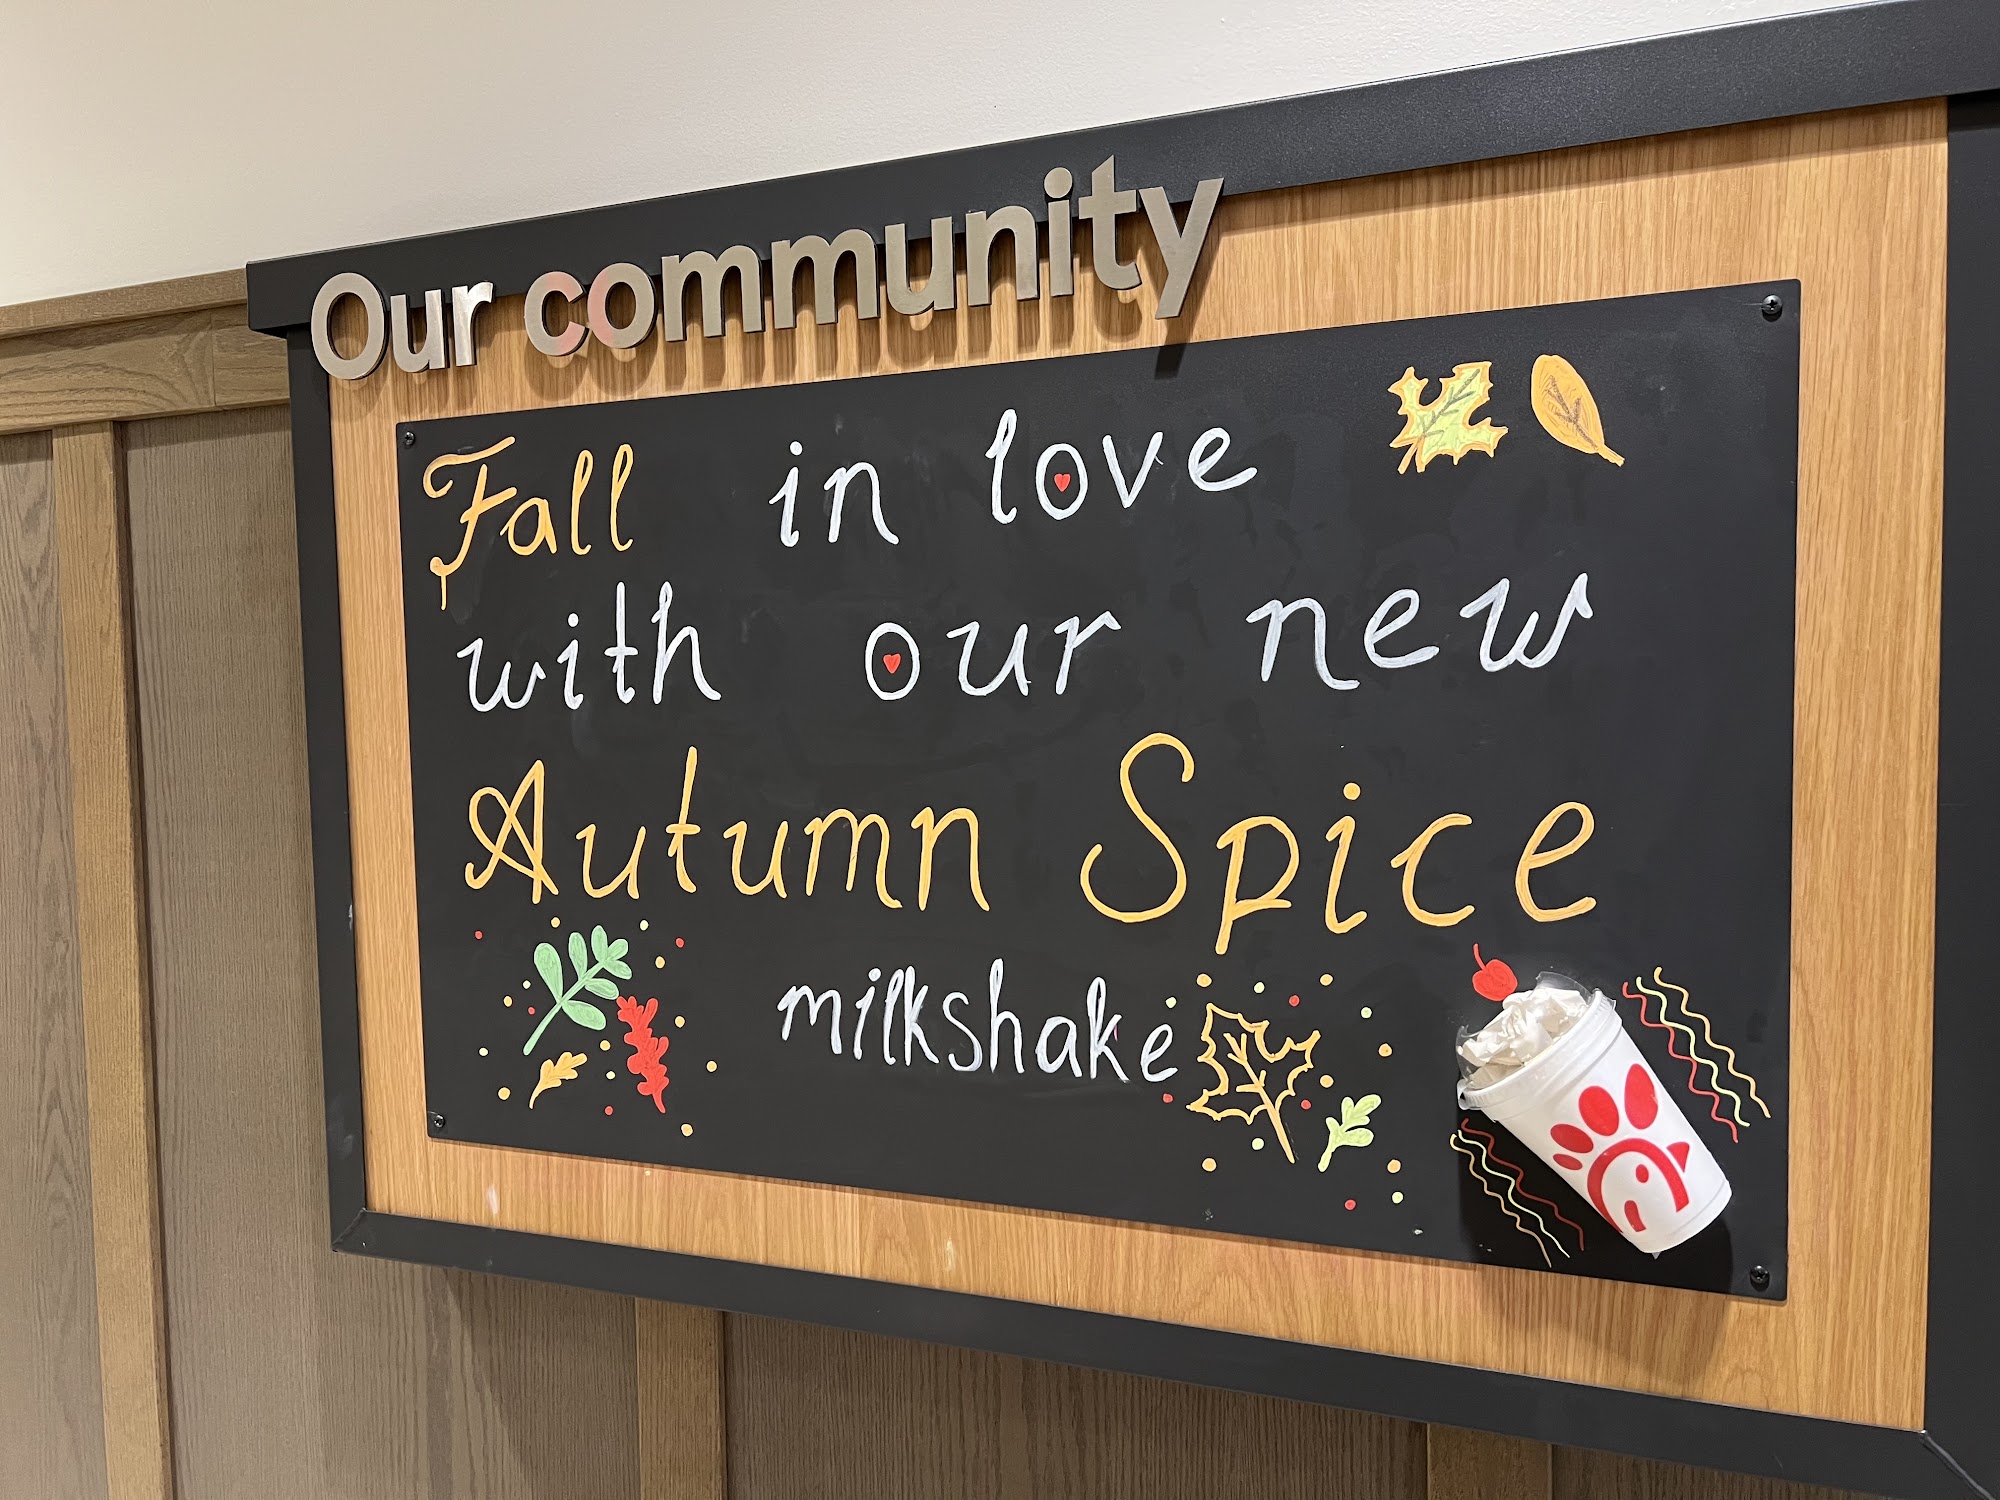 Our community
Fall in love
with our new
Autumn Spice
milkshake